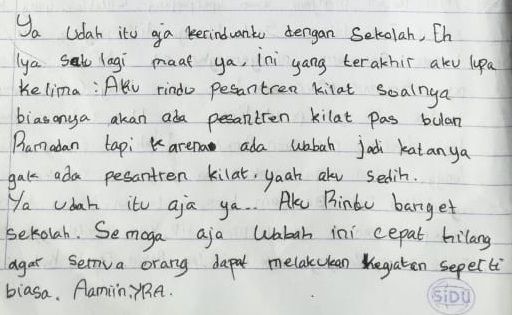 Ya Udah itu aja kerinduanku dengan Sekolah, Eh
Iya satu lagi maaf ya, ini yang terakhir aku lupa
Kelima : Aku rindu pesantren kilat Soalnya
biasanya akan ada pesantren kilat pas bulan
Ramadan tapi karena ada wabah jadi katanya
gak ada pesantren kilat, yaah aku sedih.
Ya udah itu aja ya.. Aku Rindu banget
sekolah. Semoga aja wabah ini cepat hilang
agar semua orang dapat melakukan kegiatan seperti
biasa. Aamiin, YRA.
SiDU